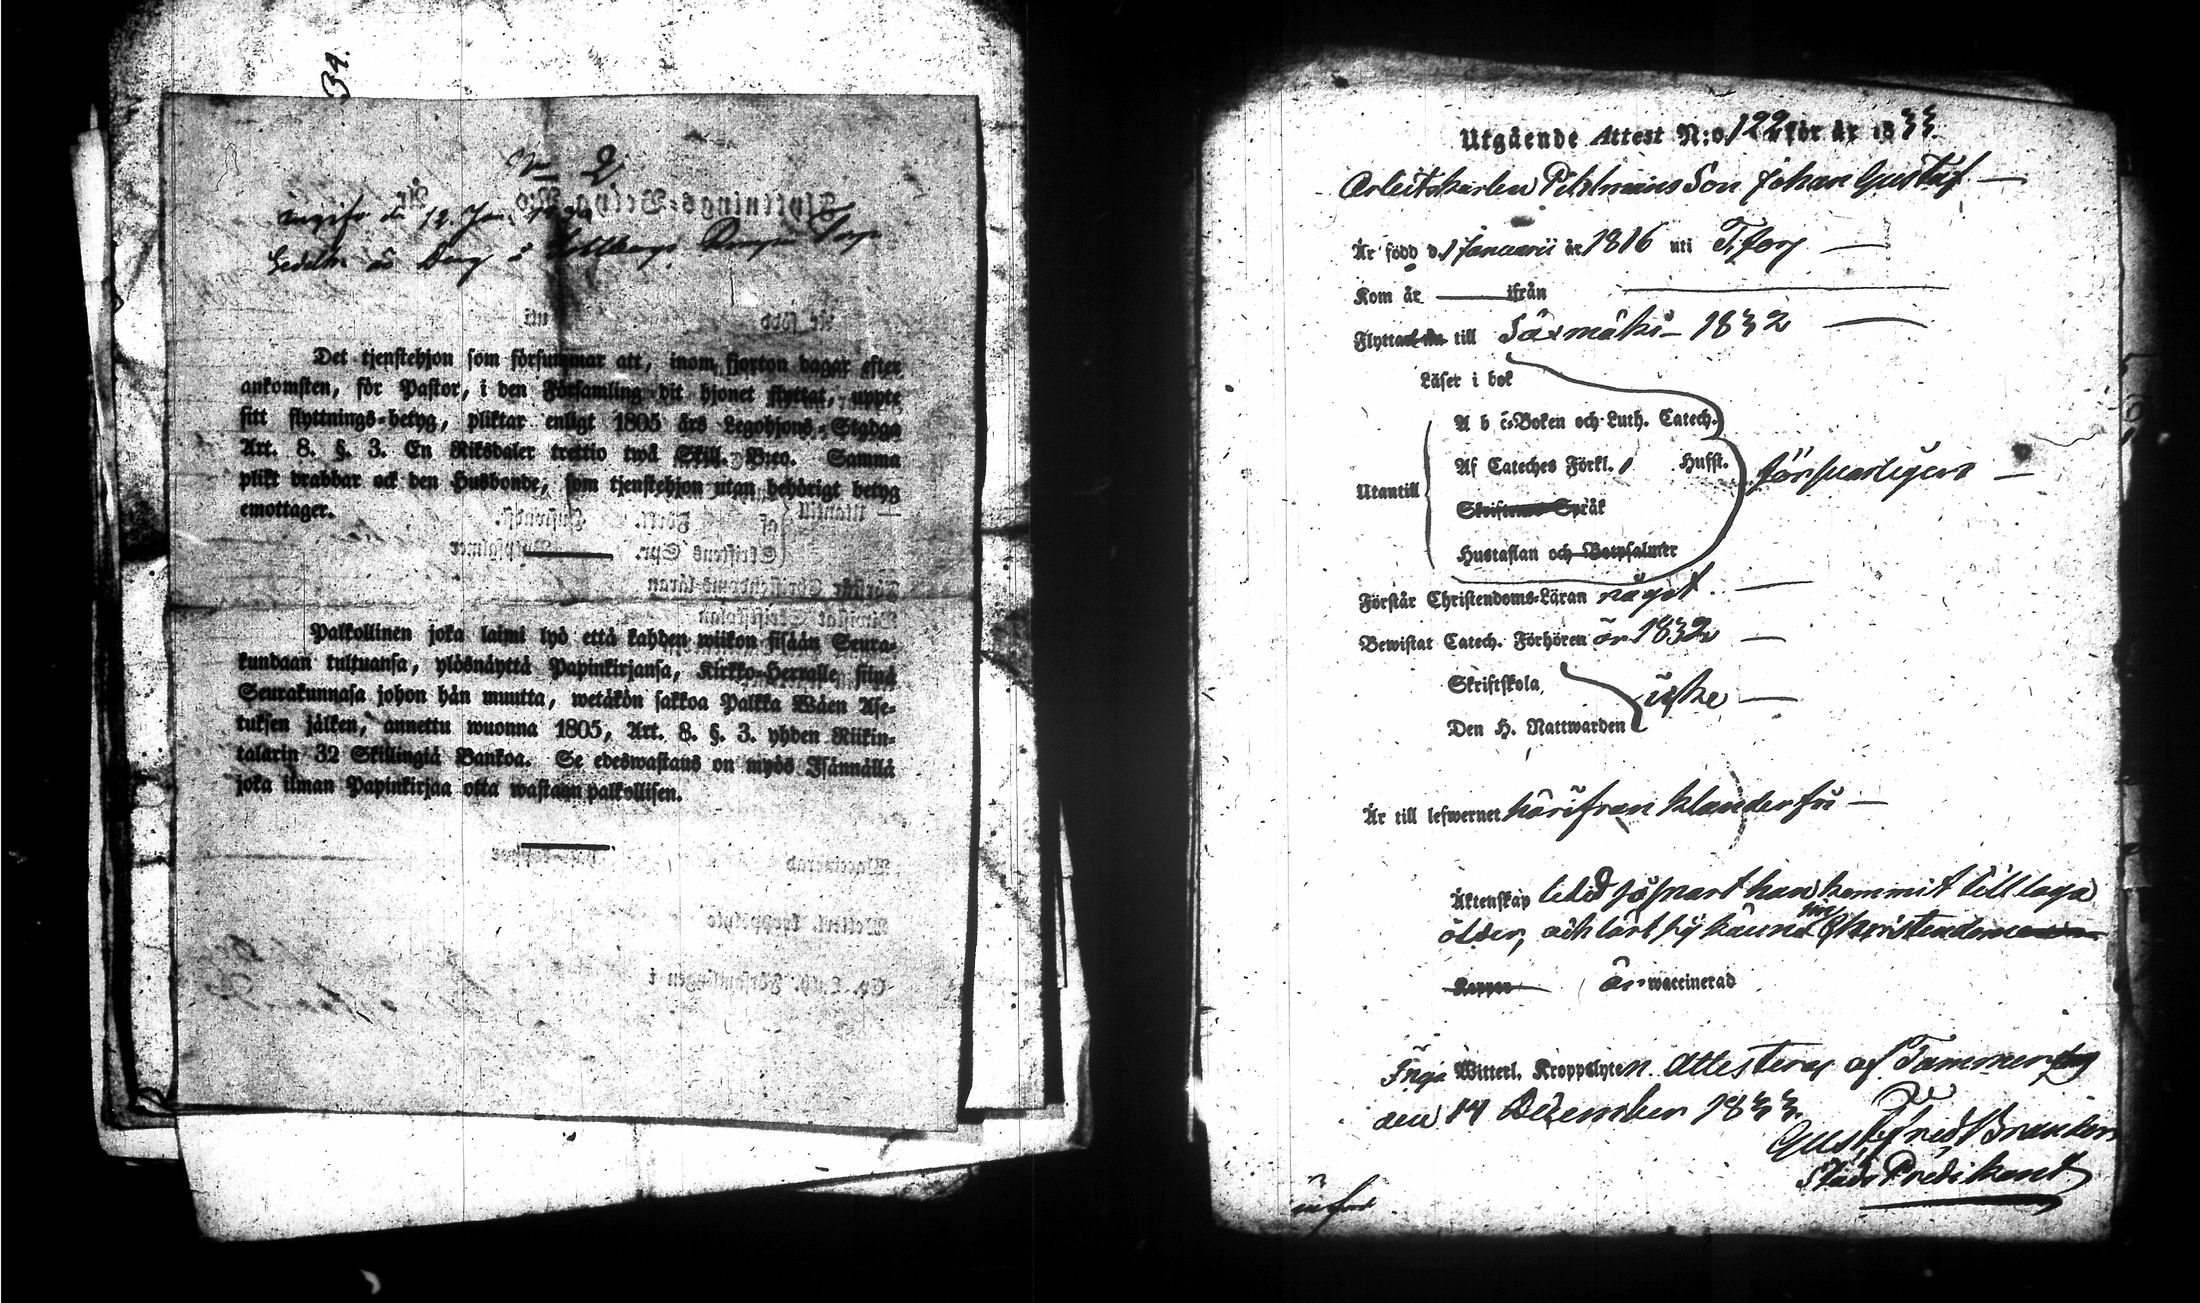 34.
No 2
Det tjenstehjon som försummar att, inom fjorton dagar efter
ankomsten, för Pastor, i den Församling dit hjonet flyttat, uppte
sitt flyttnings-betyg, pliktar enligt 1805 års Legohjons-Stadga
Art. 8. §. 3. En Riksdaler trettio twå Skill. B:co. Samma
plikt drabbar ock den Husbonde, som tjenstehjon utan behörigt betyg
emottager.
Palkollinen joka laimi lyö että kahden wiikon sisään Seura-
kundaan tultuansa, ylösnäyttä Papinkirjansa, Kirkko-Herralle siinä
Seurakunnasa johon hän muutta, wetäkön sakkoa Palkka Wäen Ase-
tuksen jälken, annettu wuonna 1805, Art. 8. §. 3. yhden Riikin-
talarin 32 Skillingiä Bankoa. Se edeswastaus on myös Isännällä
joka ilman Papinkirjaa otta wastaan palkollisen.
Utgående Attest N:o 122 för år 1833
Arbeitskarlen Pihlmans Son Johan Gustaf
Är född d. 1 Januarii år 1816 uti T.fors
Kom år ifrån
Flyttar till Säxmäki 1832
Läser i bok
A b c-Boken och Luth. Catech.
Af Cateches Förkl. Hufst.
Utantill försvarligen
Skriftenes Språk
Hustaflan och Botpsalmer
Förstår Christendoms-Läran något.
Bewistat Catech. Förhören år 1832
Skriftskola
icke
Den H. Nattwarden
Är till lefwernet härifran klanderfri
Äktenskap ledig så snart han kommit till laga
ålder, och lärt sig känna sin Christendom
Koppor är waccinerad
Inga Witterl. Kroppslyten. Attesteras af Tammerfors
den 14 December 1833.
Gust. Fred.
Stads Predikant